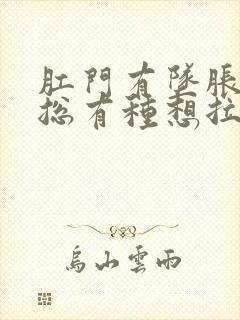 肛門有墜脹
總有種想拉
烏山雲雨